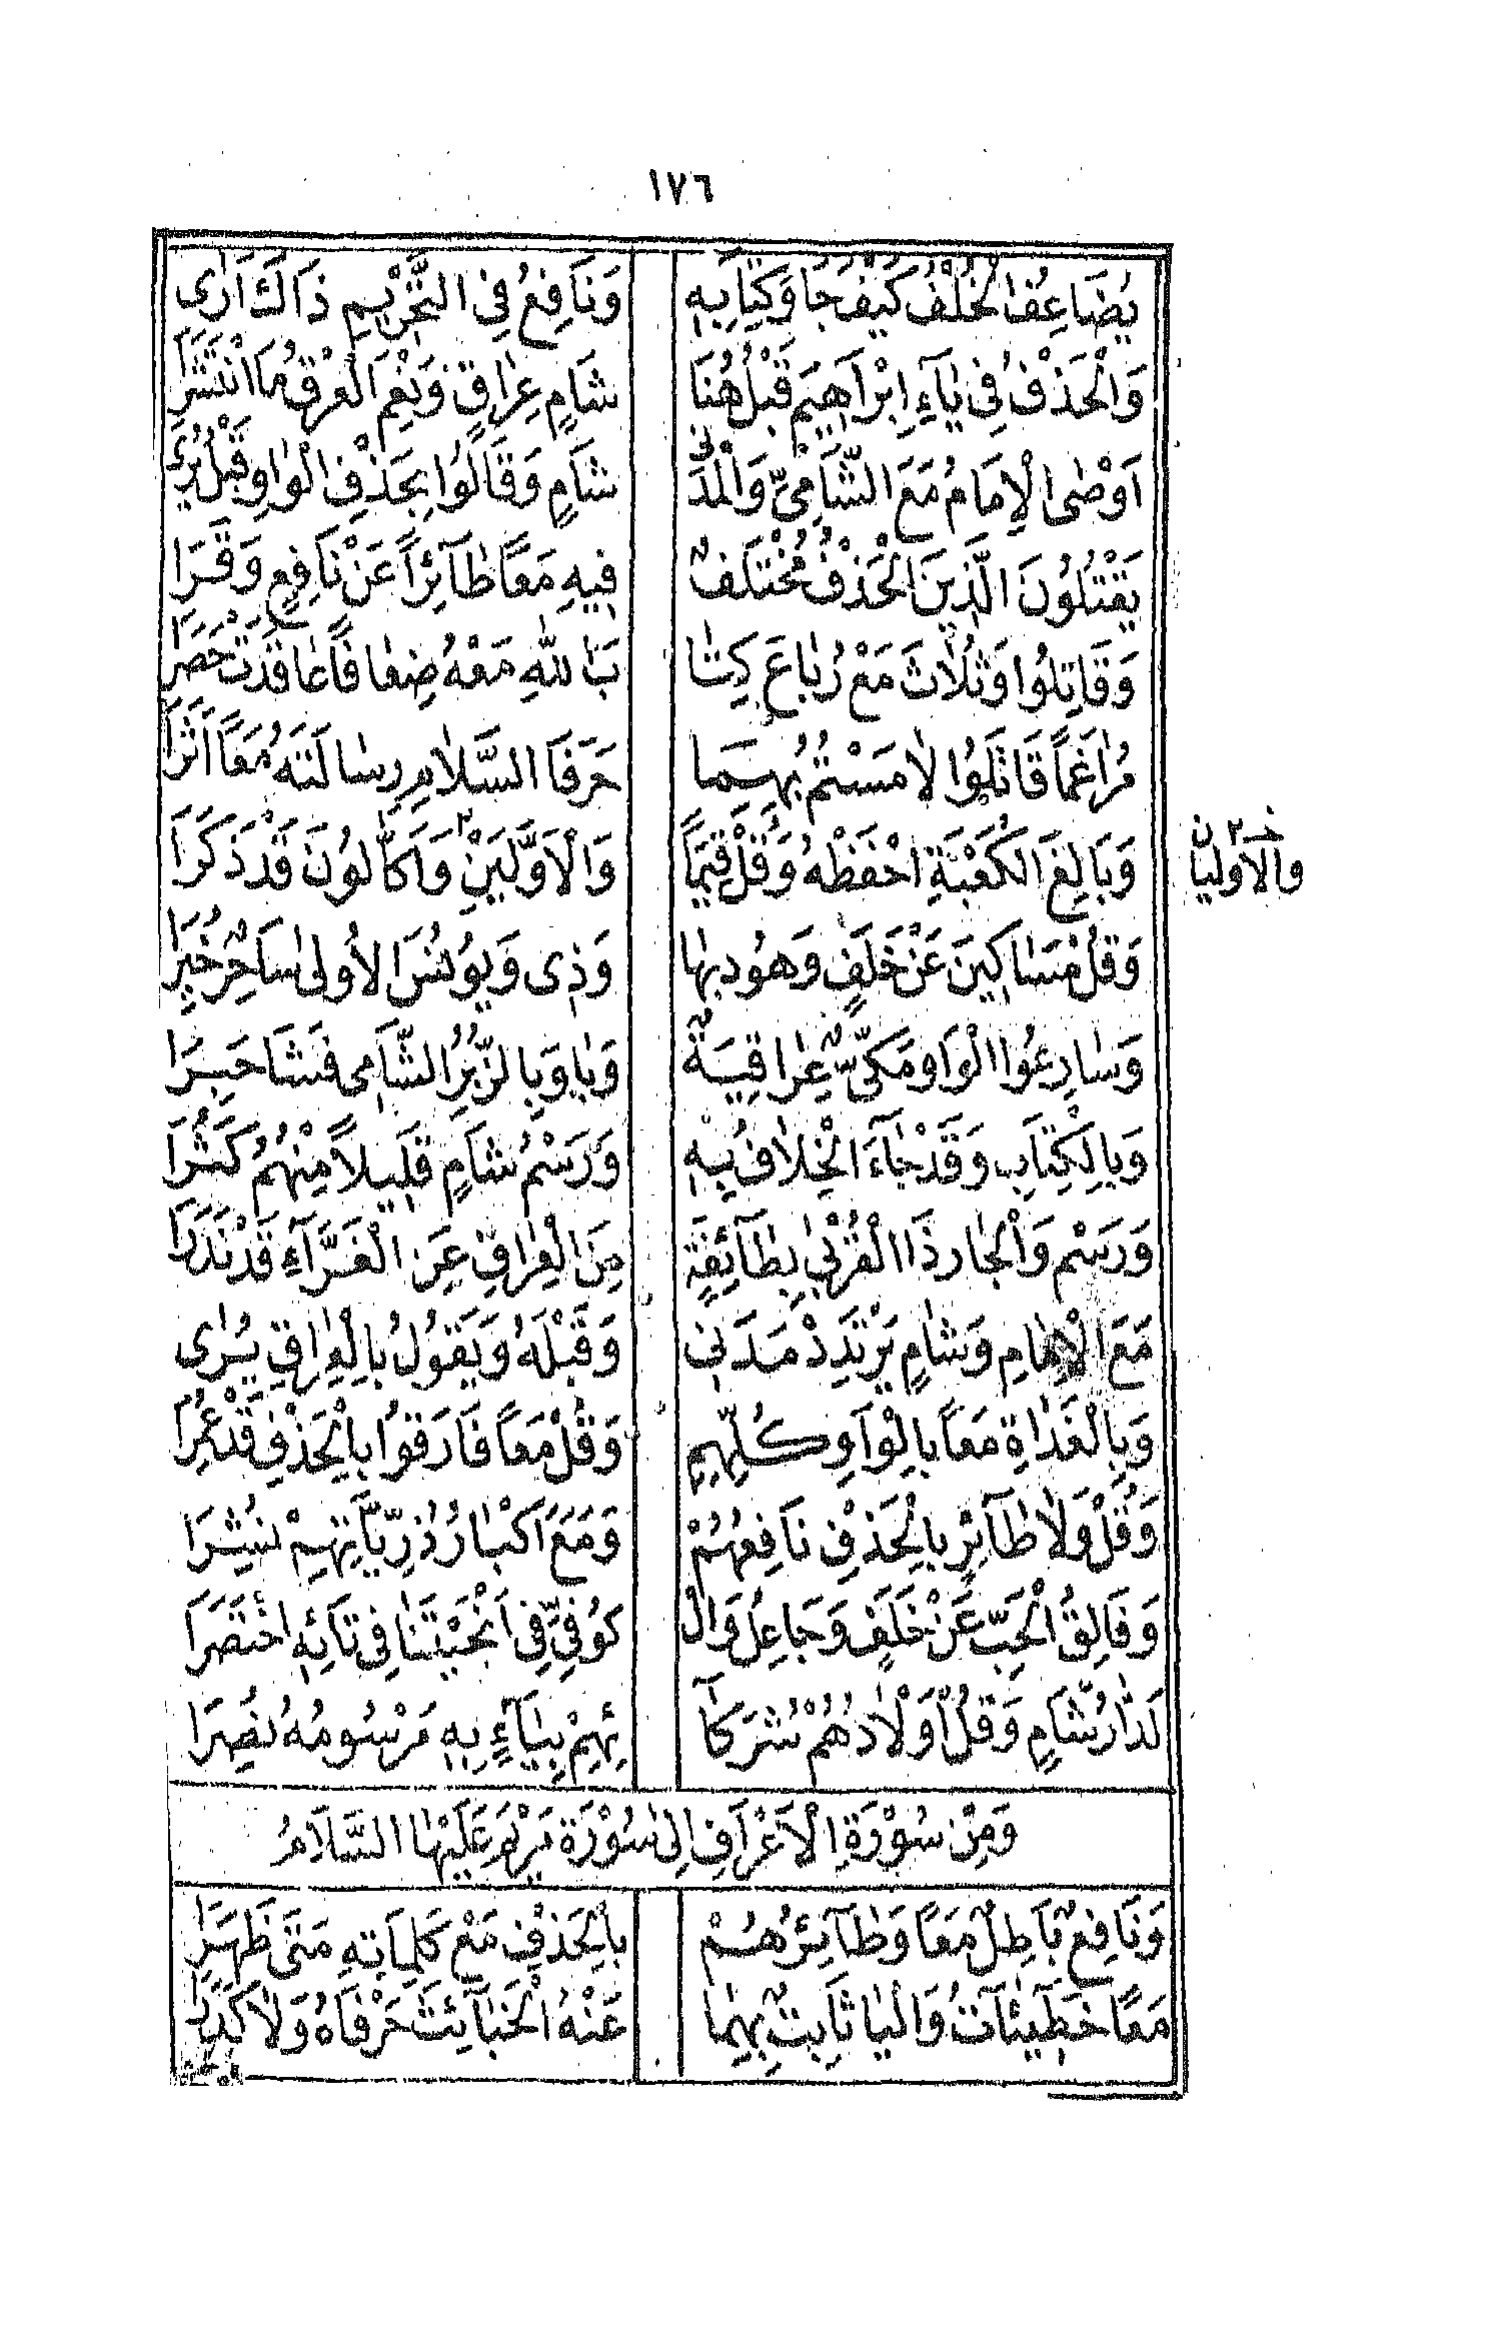 ١٧٦
يُضَاعِفُ الْخُلْفُ كَيْفَ جَا وَكِتَابِهٖ وَنَافِعُ فِى التَّحْرِيْمِ ذَاكَ اَرٰى
وَالْحَذْفُ فِى يَآءِ اِبْرَاهِيْمَ قَبْلُ هُنَا شَامٍ عِرَاقٍ وَنِعْمَ الْعِرْقُ مَا انْتَشَرَا
اَوْصٰى الْاِمَامُ مَعَ الشَّامِىِّ وَالْمَدَنِى شَامٍ وَقَالُوْا بِحَذْفِ الْوَاوِ قَبْلُ يُرٰى
يَقْتُلُوْنَ الَّذِيْنَ الْحَذْفُ مُخْتَلَفٌ فِيْهِ مَعًا طَآئِرًا عَنْ نَافِعٍ وَقَرَا
وَقَاتِلُوا وَثُلَاثَ مَعْ رُبَاعَ كِتَا بَ اللهِ مَعْهُ ضِعَافًا عَاقَدَتْ حَصَرَا
مُرَاغَمًا قَاتَلُوْا لَامَسْتُمُ بِهِمَا حَرَفَا السَّلَامِ رِسَالَتَهُ مَعًا اَثَرَا
وَبَالِغَ الْكَعْبَةِ احْفَظْهُ وَقُلْ قِيَمًا وَالْاَوَّلَيَنِ ٢ وَاَكَّالُوْنَ قَدْ ذَكَرَا
خـ ٢ ن
والاوليان
وَقُلْ مَسَاكِينَ عَنْ خَلَفٍ وَهُوْد بِهَا وَذِى وَيُوْنُسَ الْاُولٰى سَاحِرٌ خُبِرَا
وَسَارِعُوا الْوَاوَ مَكِّىٌّ عِرَاقِيَةٌ وَبَا وَبِالزُّبُرِ الشَّامِى فَشَا خَبَرَا
وَبِالْكِتَابِ وَقَدْ جَآءَ الْخِلَافُ بِهٖ وَرَسْمُ شَامٍ قَلِيْلًا مِنْهُمُ كَثُرَا
وَرَسْم وَالْجَار ذَا الْقُرْبٰى بِطَآئِفَةٍ مِنَ الْعِرَاقِ عَنِ الْفَرَّآءِ قَدْ نَدَرَا
مَعَ الْاِمَامِ وَشَامٍ يَرْتَدِدْ مَدَنِى وَقَبْلَهُ وَيَقُوْلُ بِالْعِرَاقِ يُرٰى
وَبِالْغَدَاةِ مَعًا بِالْوَاوِ كُلِّهِمِ وَقُلْ مَعًا فَارَقُوا بِالْحَذْفِ قَدْ عُمِرَا
وَقُلْ وَلَا طَآئِرٍ بِالْحَذْفِ نَافِعُهُمْ وَمَعَ اَكَابِرُ ذُرِّيَّاتِهِمْ نُشِرَا
وَفَالِقُ الْحَبِّ عَنْ خَلَفٍ وَجَاعِلُ وَالْ كُوْفِىِّ فِى اَنْجَيْتَنَا فِى تَائِهٖ اخْتَصَرَا
لَدَّارُ شَامٍ وَقُلْ اَوْلَادُهُمْ شُرَكَآ ئِهِمْ بِيَآءٍ بِهٖ مَرْسُوْمُهُ نُصِرَا
وَمِنْ سُوْرَةِ الْاَعْرَافِ اِلٰى سُوْرَةِ مَرْيَمَ عَلَيْهَا السَّلَامُ
وَنَافِعٌ بَاطِلٌ مَعًا وَطَآئِرُهُمْ بِالْحَذْفِ مَعْ كَلِمَاتِهِ مَتٰى ظَهَرَا
مَعًا خَطِيْئَاتُ وَالْيَا ثَابِتٌ بِهِمَا عَنْهُ الْخَبَآئِثَ حَرْفَاهُ وَلَا كَدَرَا